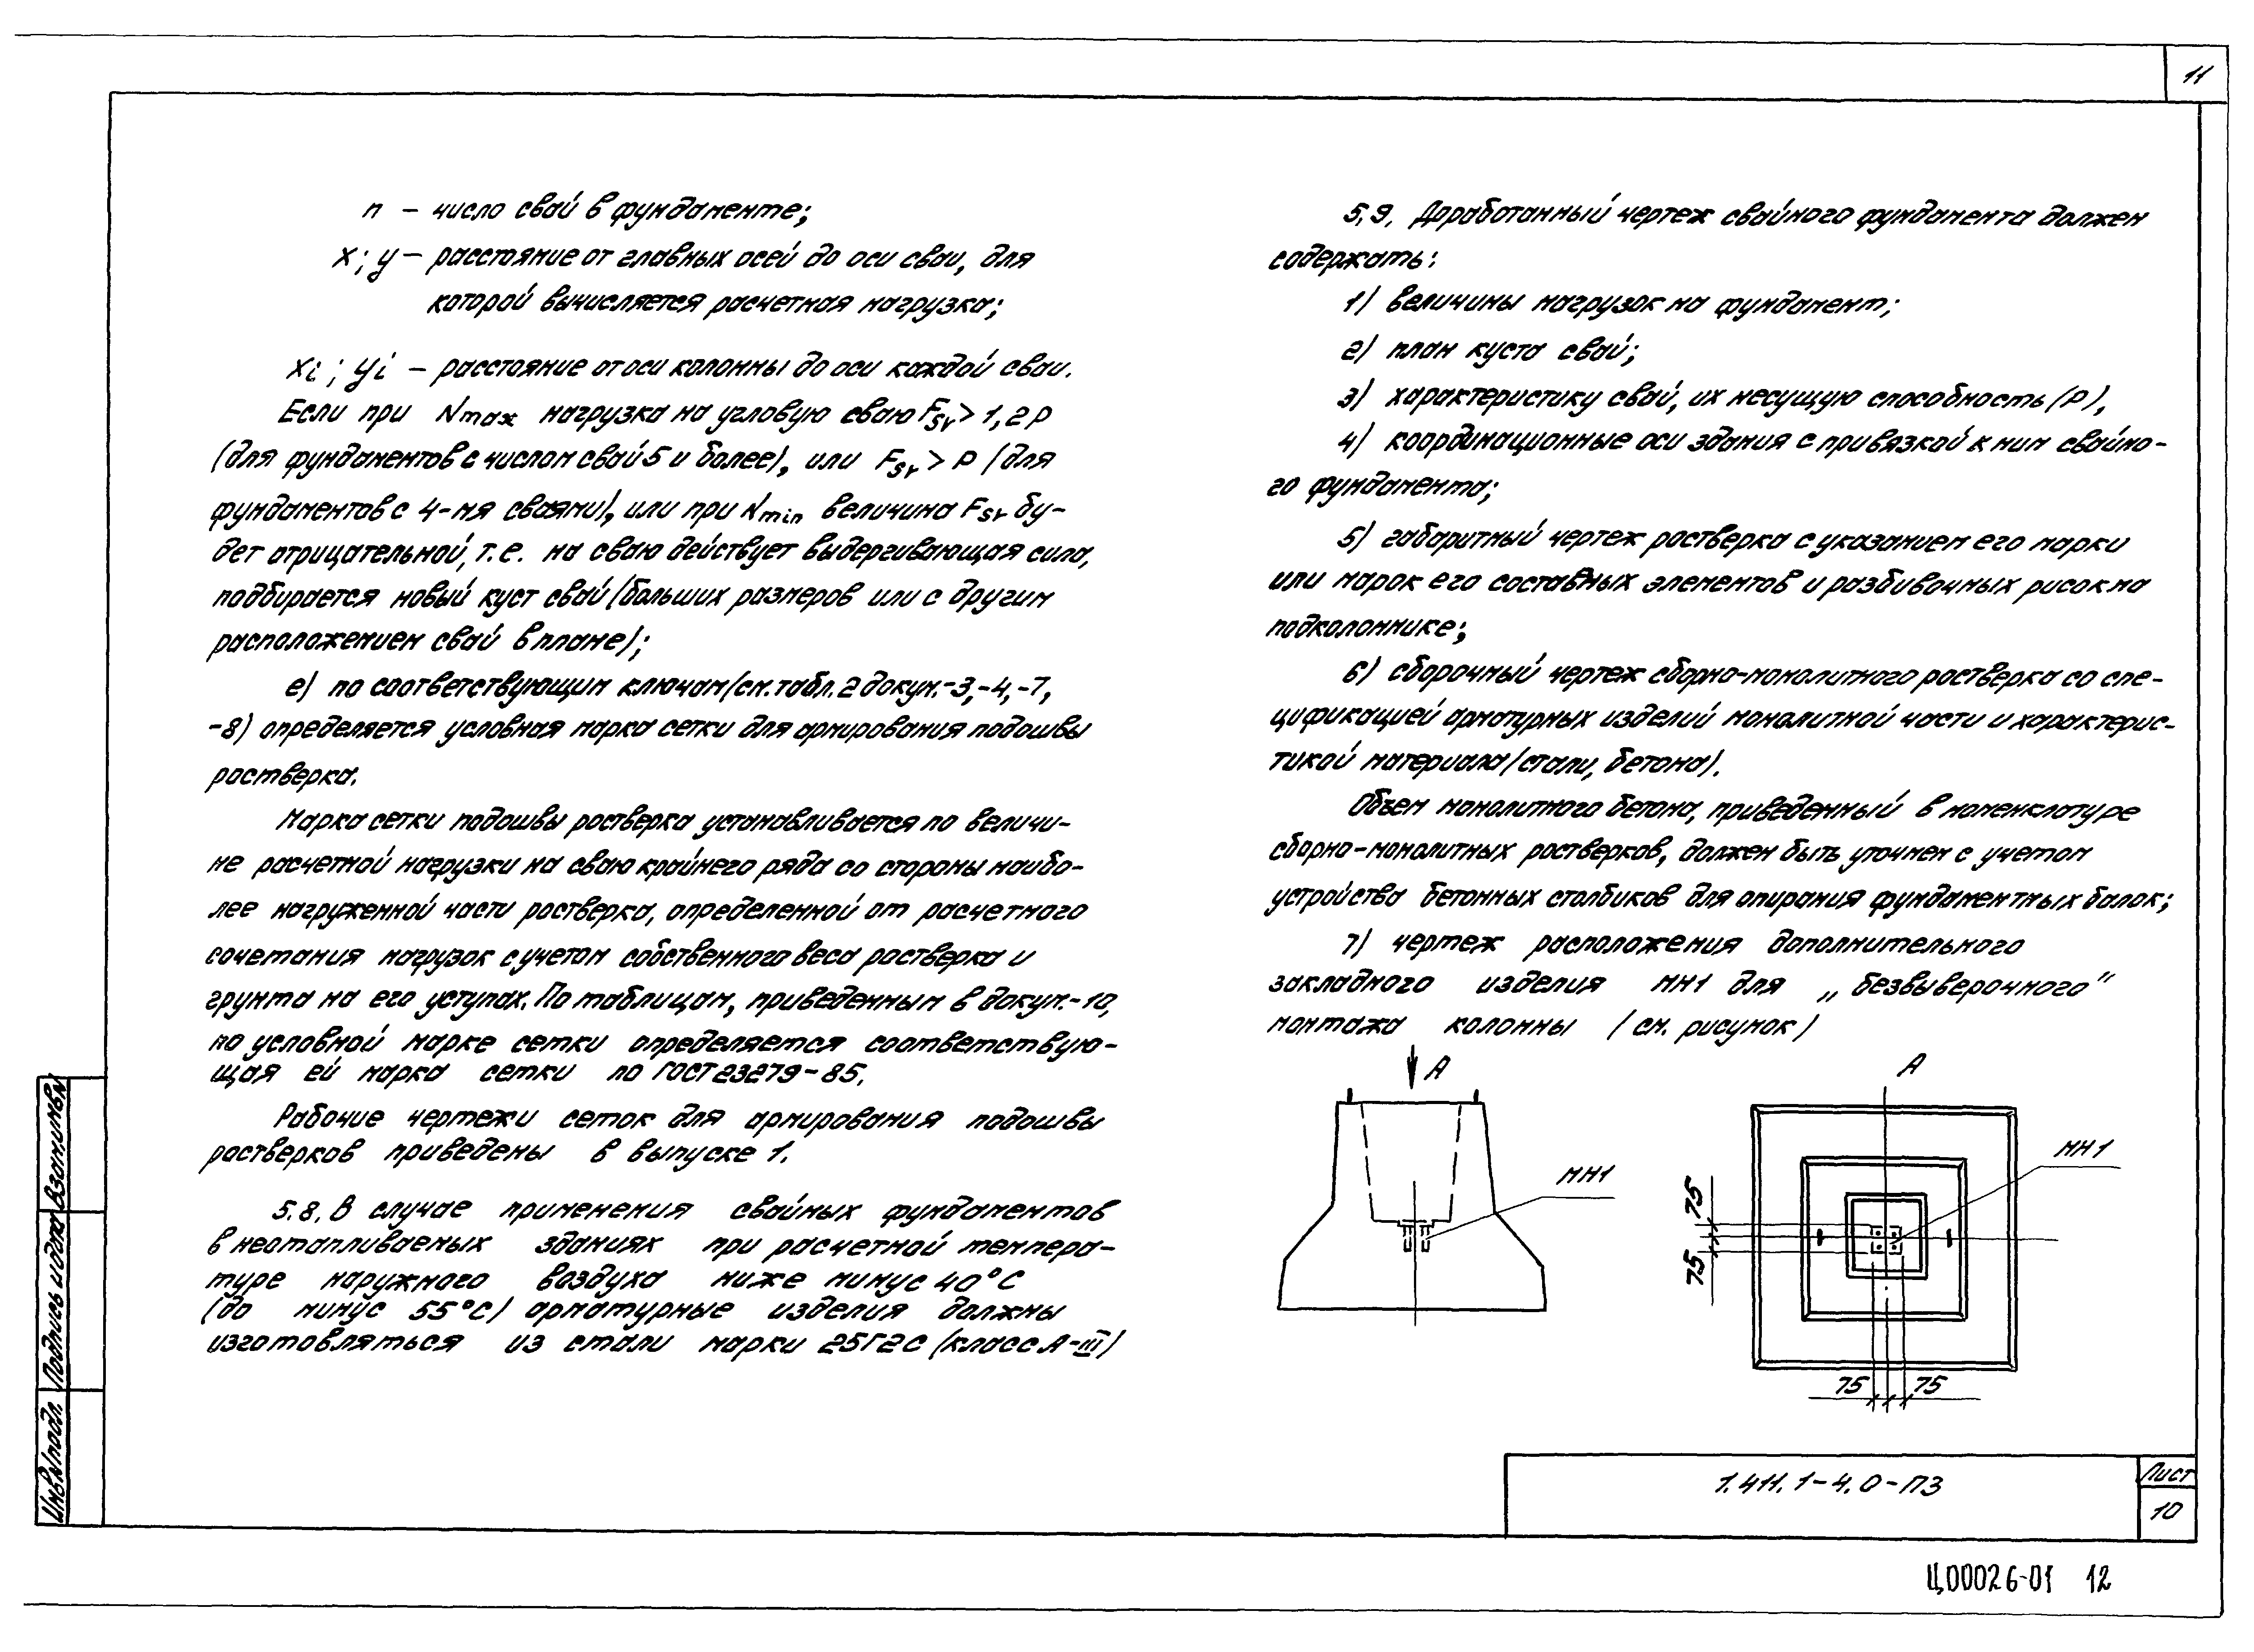 11
n – число свай в фундаменте;
x; y – расстояние от главных осей до оси сваи, для
которой вычисляется расчетная нагрузка;
xi; yi – расстояние от оси колонны до оси каждой сваи.
Если при Nmax нагрузка на угловую сваю Fsr > 1,2 P
(для фундаментов с числом свай 5 и более), или Fsr > P (для
фундаментов с 4-мя сваями), или при Nmin величина Fsr бу-
дет отрицательной, т.е. на сваю действует выдергивающая сила,
подбирается новый куст свай (больших размеров или с другим
расположением свай в плане);
е) по соответствующим ключам (см. табл. 2 докум.-3,-4,-7,
-8) определяется условная марка сетки для армирования подошвы
ростверка.
Марка сетки подошвы ростверка устанавливается по величи-
не расчетной нагрузки на сваю крайнего ряда со стороны наибо-
лее нагруженной части ростверка, определенной от расчетного
сочетания нагрузок с учетом собственного веса ростверка и
грунта на его уступах. По таблицам, приведенным в докум.-10,
по условной марке сетки определяется соответствую-
щая ей марка сетки по ГОСТ 23279-85.
Рабочие чертежи сеток для армирования подошвы
ростверков приведены в выпуске 1.
5.8. В случае применения свайных фундаментов
в неотапливаемых зданиях при расчетной темпера-
туре наружного воздуха ниже минус 40°С
(до минус 55°С) арматурные изделия должны
изготовляться из стали марки 25Г2С (класс А-III)
5.9. Доработанный чертеж свайного фундамента должен
содержать:
1) величины нагрузок на фундамент;
2) план куста свай;
3) характеристику свай, их несущую способность (P),
4) координационные оси здания с привязкой к ним свайно-
го фундамента;
5) габаритный чертеж ростверка с указанием его марки
или марок его составных элементов и разбивочных рисок на
подколоннике;
6) сборочный чертеж сборно-монолитного ростверка со спе-
цификацией арматурных изделий монолитной части и характерис-
тикой материала (стали, бетона).
Объем монолитного бетона, приведенный в номенклатуре
сборно-монолитных ростверков, должен быть уточнен с учетом
устройства бетонных столбиков для опирания фундаментных балок;
7) чертеж расположения дополнительного
закладного изделия МН1 для „безвыверочного"
монтажа колонны (см. рисунок)
А
МН1
А
МН1
75
75
75
75
1.411.1-4.0-ПЗ
Лист
10
Взам.инв.N
Подпись и дата
Инв.N подл.
Ц00026-01 12